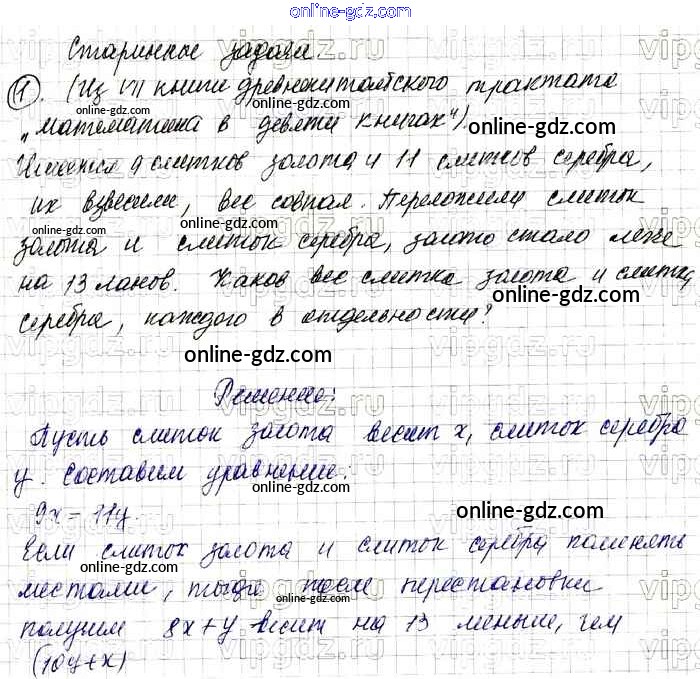 online-gdz.com
Старинные задачи
online-gdz.com
1. (Из VII книги древнекитайского трактата
„Математика в девяти книгах“).
online-gdz.com
Имеется 9 слитков золота и 11 слитков серебра,
их взвесили, вес совпал. Переложили слиток
online-gdz.com
золота и слиток серебра, золото стало легче
на 13 ланов. Каков вес слитка золота и слитка
online-gdz.com
серебра, каждого в отдельности?
online-gdz.com
Решение:
Пусть слиток золота весит x, слиток серебра
online-gdz.com
y. Составим уравнение:
online-gdz.com
9x = 11y.
online-gdz.com
Если слиток золота и слиток серебра поменять
местами, тогда после перестановки
online-gdz.com
получим 8x + y весит на 13 меньше, чем
(10y + x)
online-gdz.com